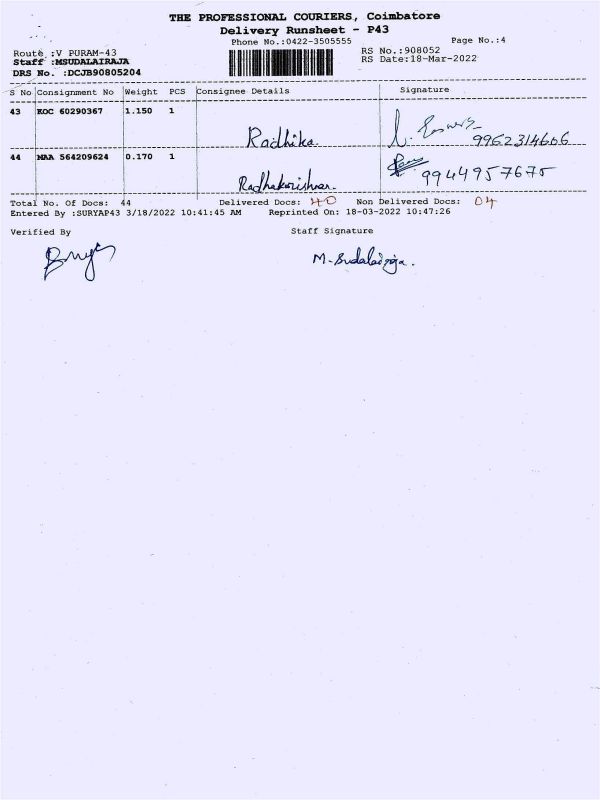 THE PROFESSIONAL COURIERS, Coimbatore
Delivery Runsheet - P43
Phone No.:0422-3505555 Page No.:4
Route :V PURAM-43 RS No.:908052
Staff :MSUDALAIRAJA RS Date:18-Mar-2022
DRS No. :DCJB90805204
S No Consignment No Weight PCS Consignee Details Signature
43 KOC 60290367 1.150 1
Radhika. 9962314606
44 MAA 564209624 0.170 1
Radhakrishnan. 9944957675
Total No. Of Docs: 44 Delivered Docs: 40 Non Delivered Docs: 04
Entered By :SURYAP43 3/18/2022 10:41:45 AM Reprinted On: 18-03-2022 10:47:26
Verified By Staff Signature
M. Sudalairaja.